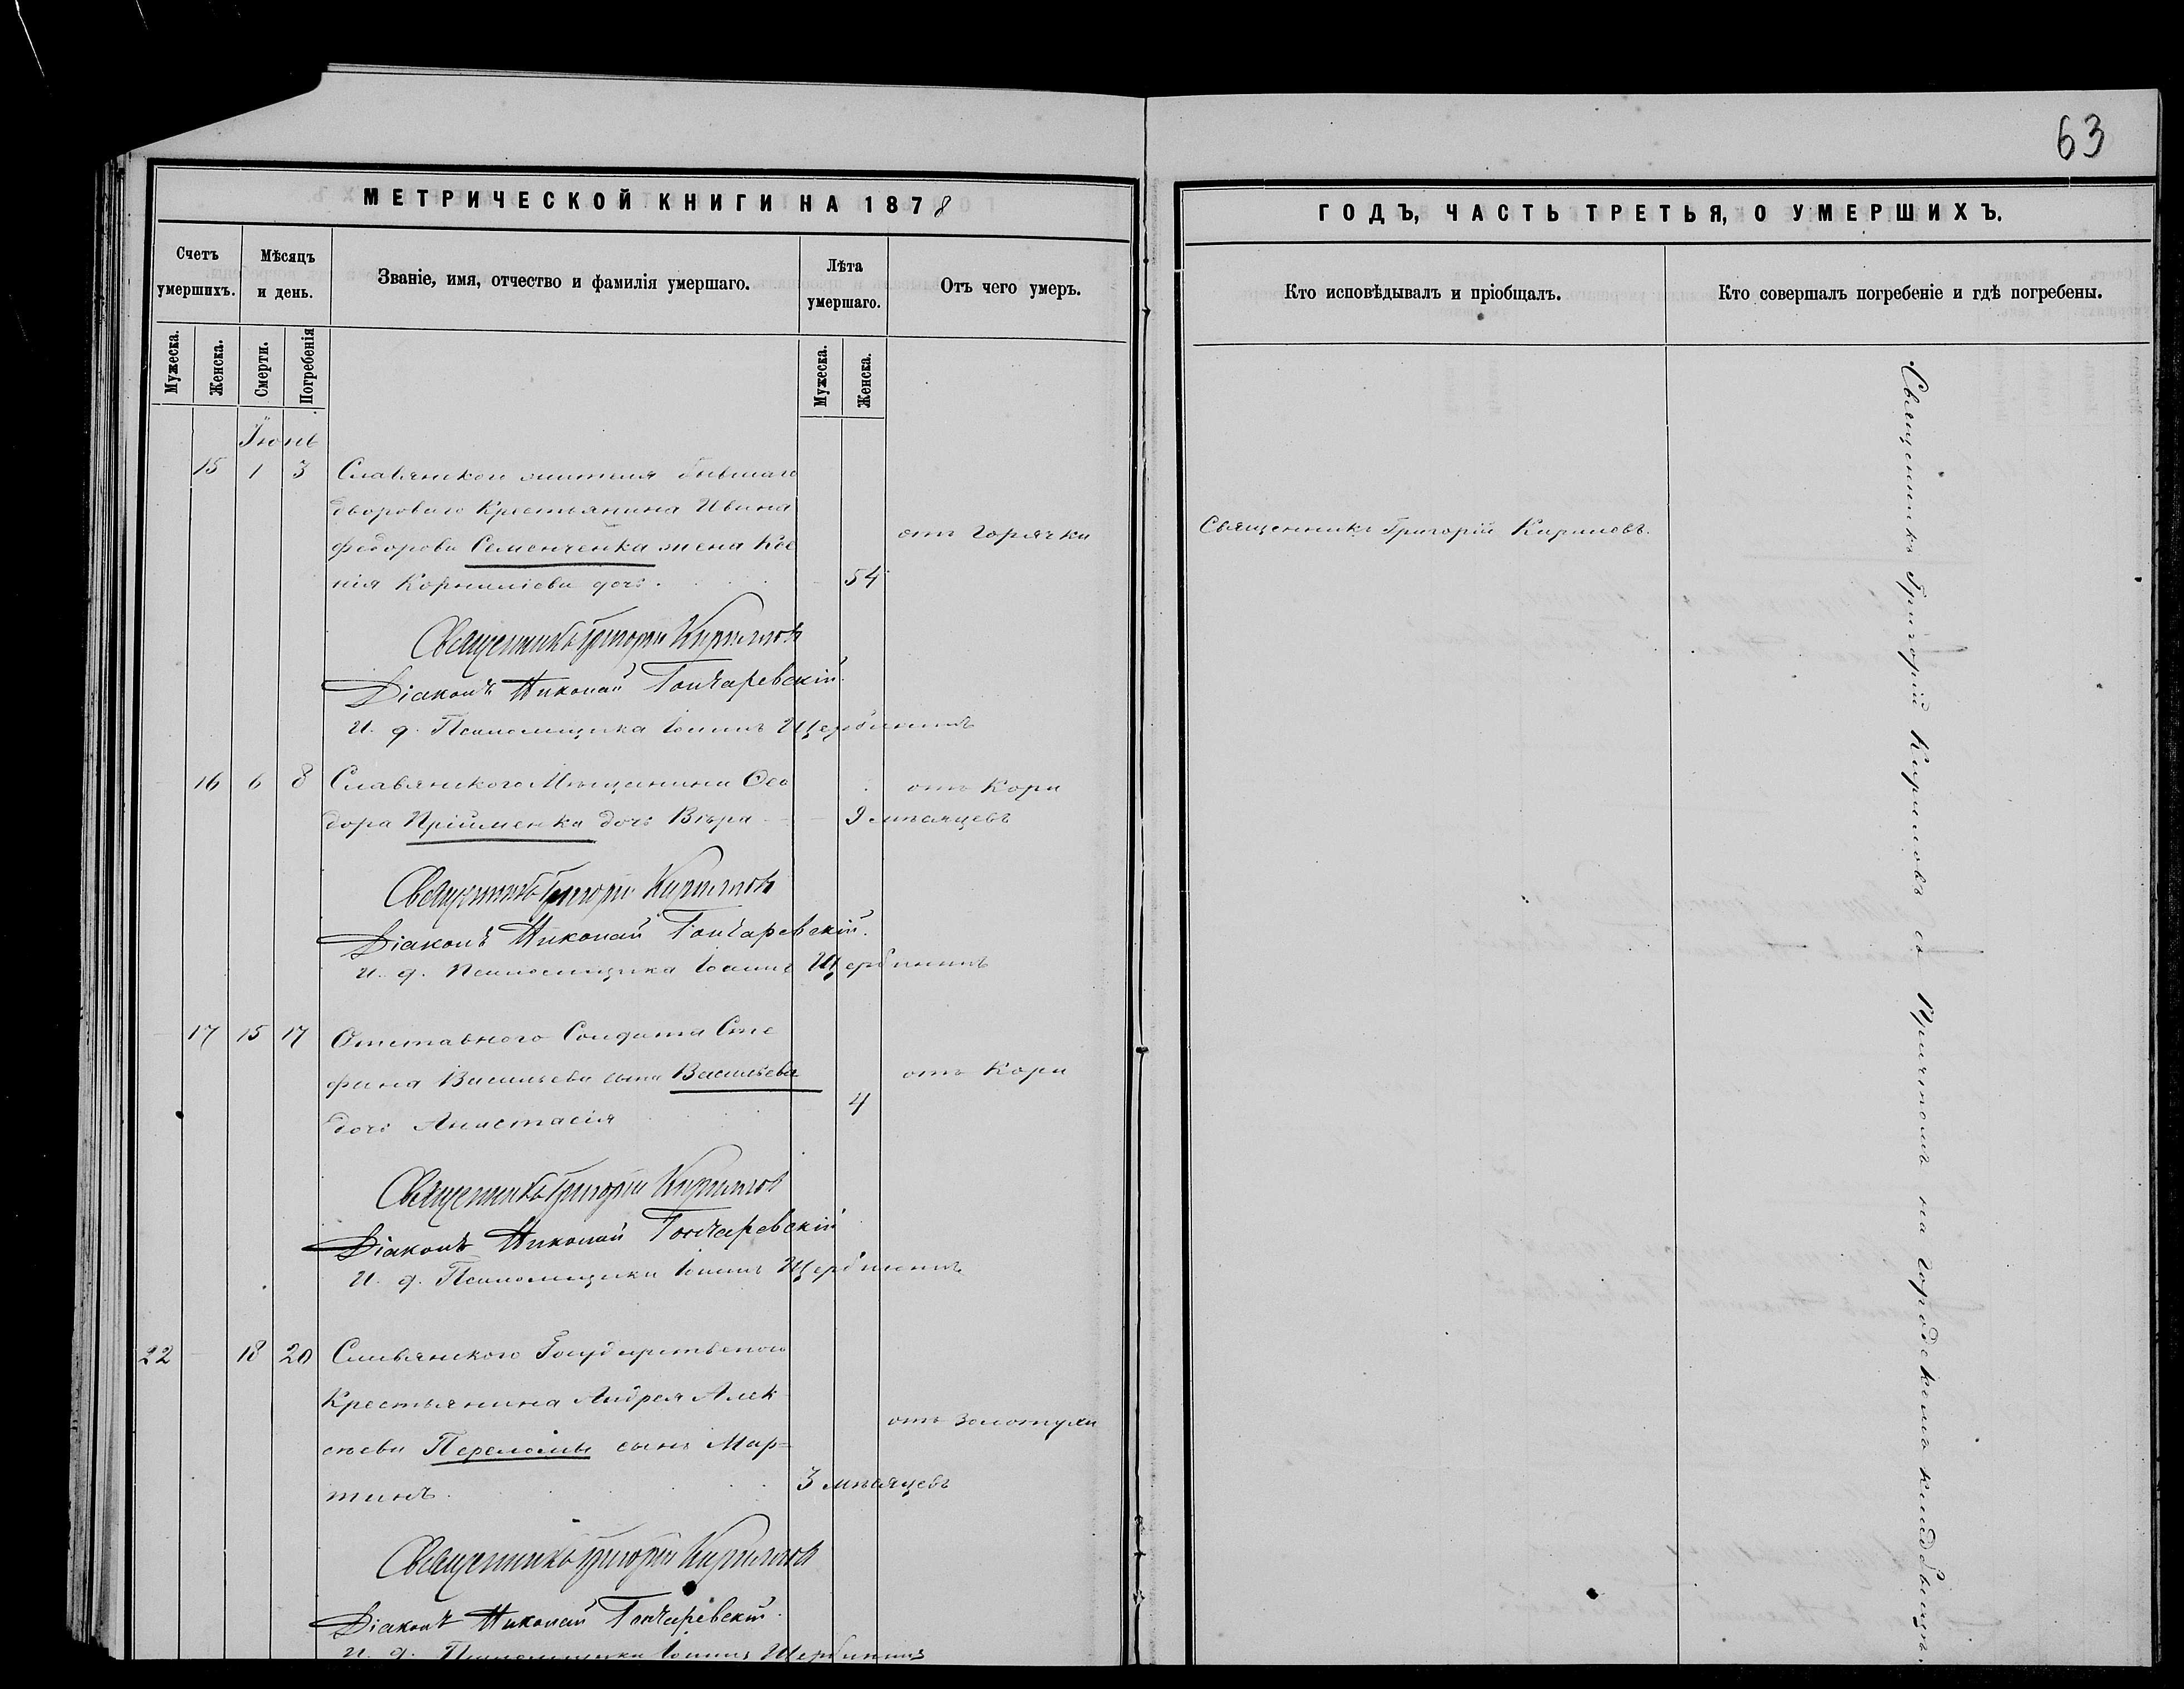 63
МЕТРИЧЕСКОЙ КНИГИ НА 1878
ГОДЪ, ЧАСТЬ ТРЕТЬЯ, О УМЕРШИХЪ.
Счетъ умершихъ.
Мѣсяцъ и день.
Званіе, имя, отчество и фамилія умершаго.
Лѣта умершаго.
Отъ чего умеръ.
Кто исповѣдывалъ и пріобщалъ.
Кто совершалъ погребеніе и гдѣ погребены.
Мужеска.
Женска.
Смерти.
Погребенія
Мужеска.
Женска.
Іюнь
15 1 3 Славянского жителя бывшаго
двороваго Крестьянина Ивана
Федорова Семенченка жена Ксе
нія Корниліева дочь. 54
отъ горячки
Священникъ Григорій Кириловъ.
Священникъ Григорій Кириловъ
Діаконъ Николай Гончаревскій.
И. д. Псаломщика Іоаннъ Щербининъ
16 6 8 Славянского Мѣщанина Ѳео
дора Прійменка дочь Вѣра 9 мѣсяцевъ
отъ Кори
Священникъ Григорій Кириловъ
Діаконъ Николай Гончаревскій.
И. д. Псаломщика Іоаннъ Щербининъ
17 15 17 Отставного Солдата Сте
фана Васильева сына Васильева
дочь Анастасія 4
отъ Кори
Священникъ Григорій Кириловъ
Діаконъ Николай Гончаревскій
И. д. Псаломщика Іоаннъ Щербининъ
22 18 20 Славянского Государственого
Крестьянина Андрея Алек
сѣева Переломы сынъ Мар=
тинъ. 3 мѣсяцевъ
отъ золотухи
Священникъ Григорій Кириловъ
Діаконъ Николай Гончаревскій.
И. д. Псаломщика Іоаннъ Щербининъ
Священникъ Григорій Кириловъ съ Причтомъ на городскомъ кладбищѣ.